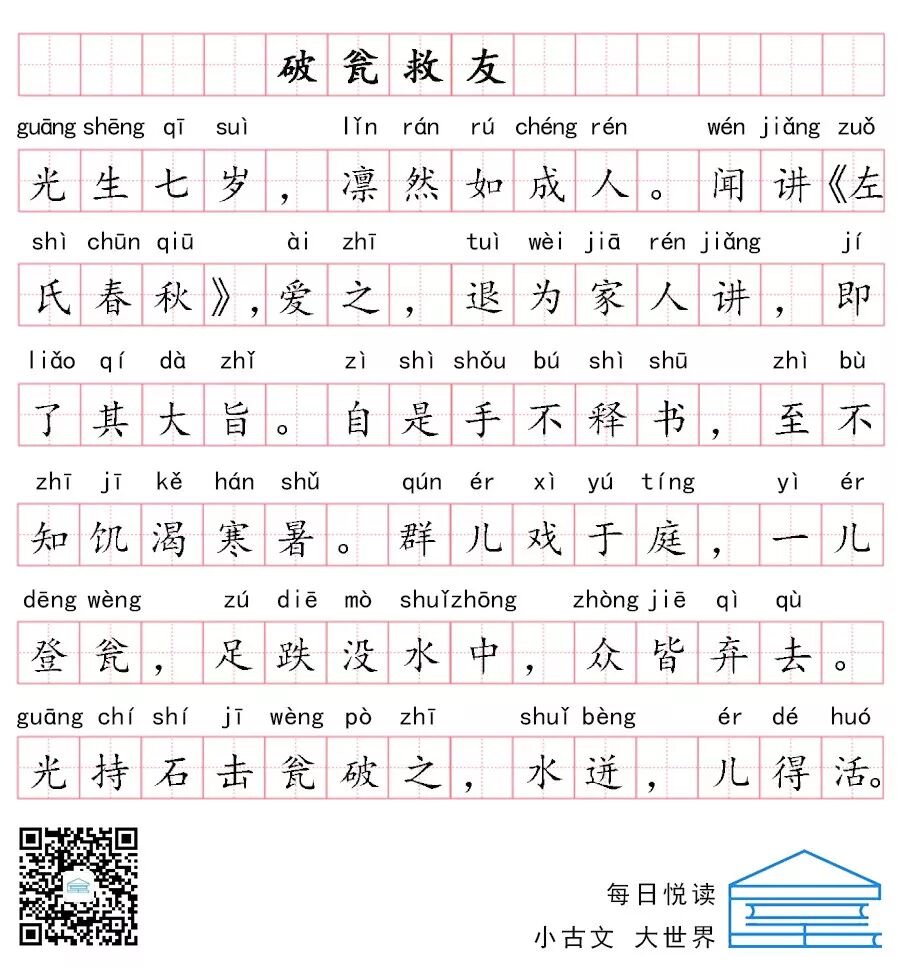 破瓮救友
guāng shēng qī suì lǐn rán rú chéng rén wén jiǎng zuǒ
光生七岁，凛然如成人。闻讲《左
shì chūn qiū ài zhī tuì wèi jiā rén jiǎng jí
氏春秋》，爱之，退为家人讲，即
liǎo qí dà zhǐ zì shì shǒu bú shì shū zhì bù
了其大旨。自是手不释书，至不
zhī jī kě hán shǔ qún ér xì yú tíng yì ér
知饥渴寒暑。群儿戏于庭，一儿
dēng wèng zú diē mò shuǐ zhōng zhòng jiē qì qù
登瓮，足跌没水中，众皆弃去。
guāng chí shí jī wèng pò zhī shuǐ bèng ér dé huó
光持石击瓮破之，水迸，儿得活。
每日悦读
小古文 大世界